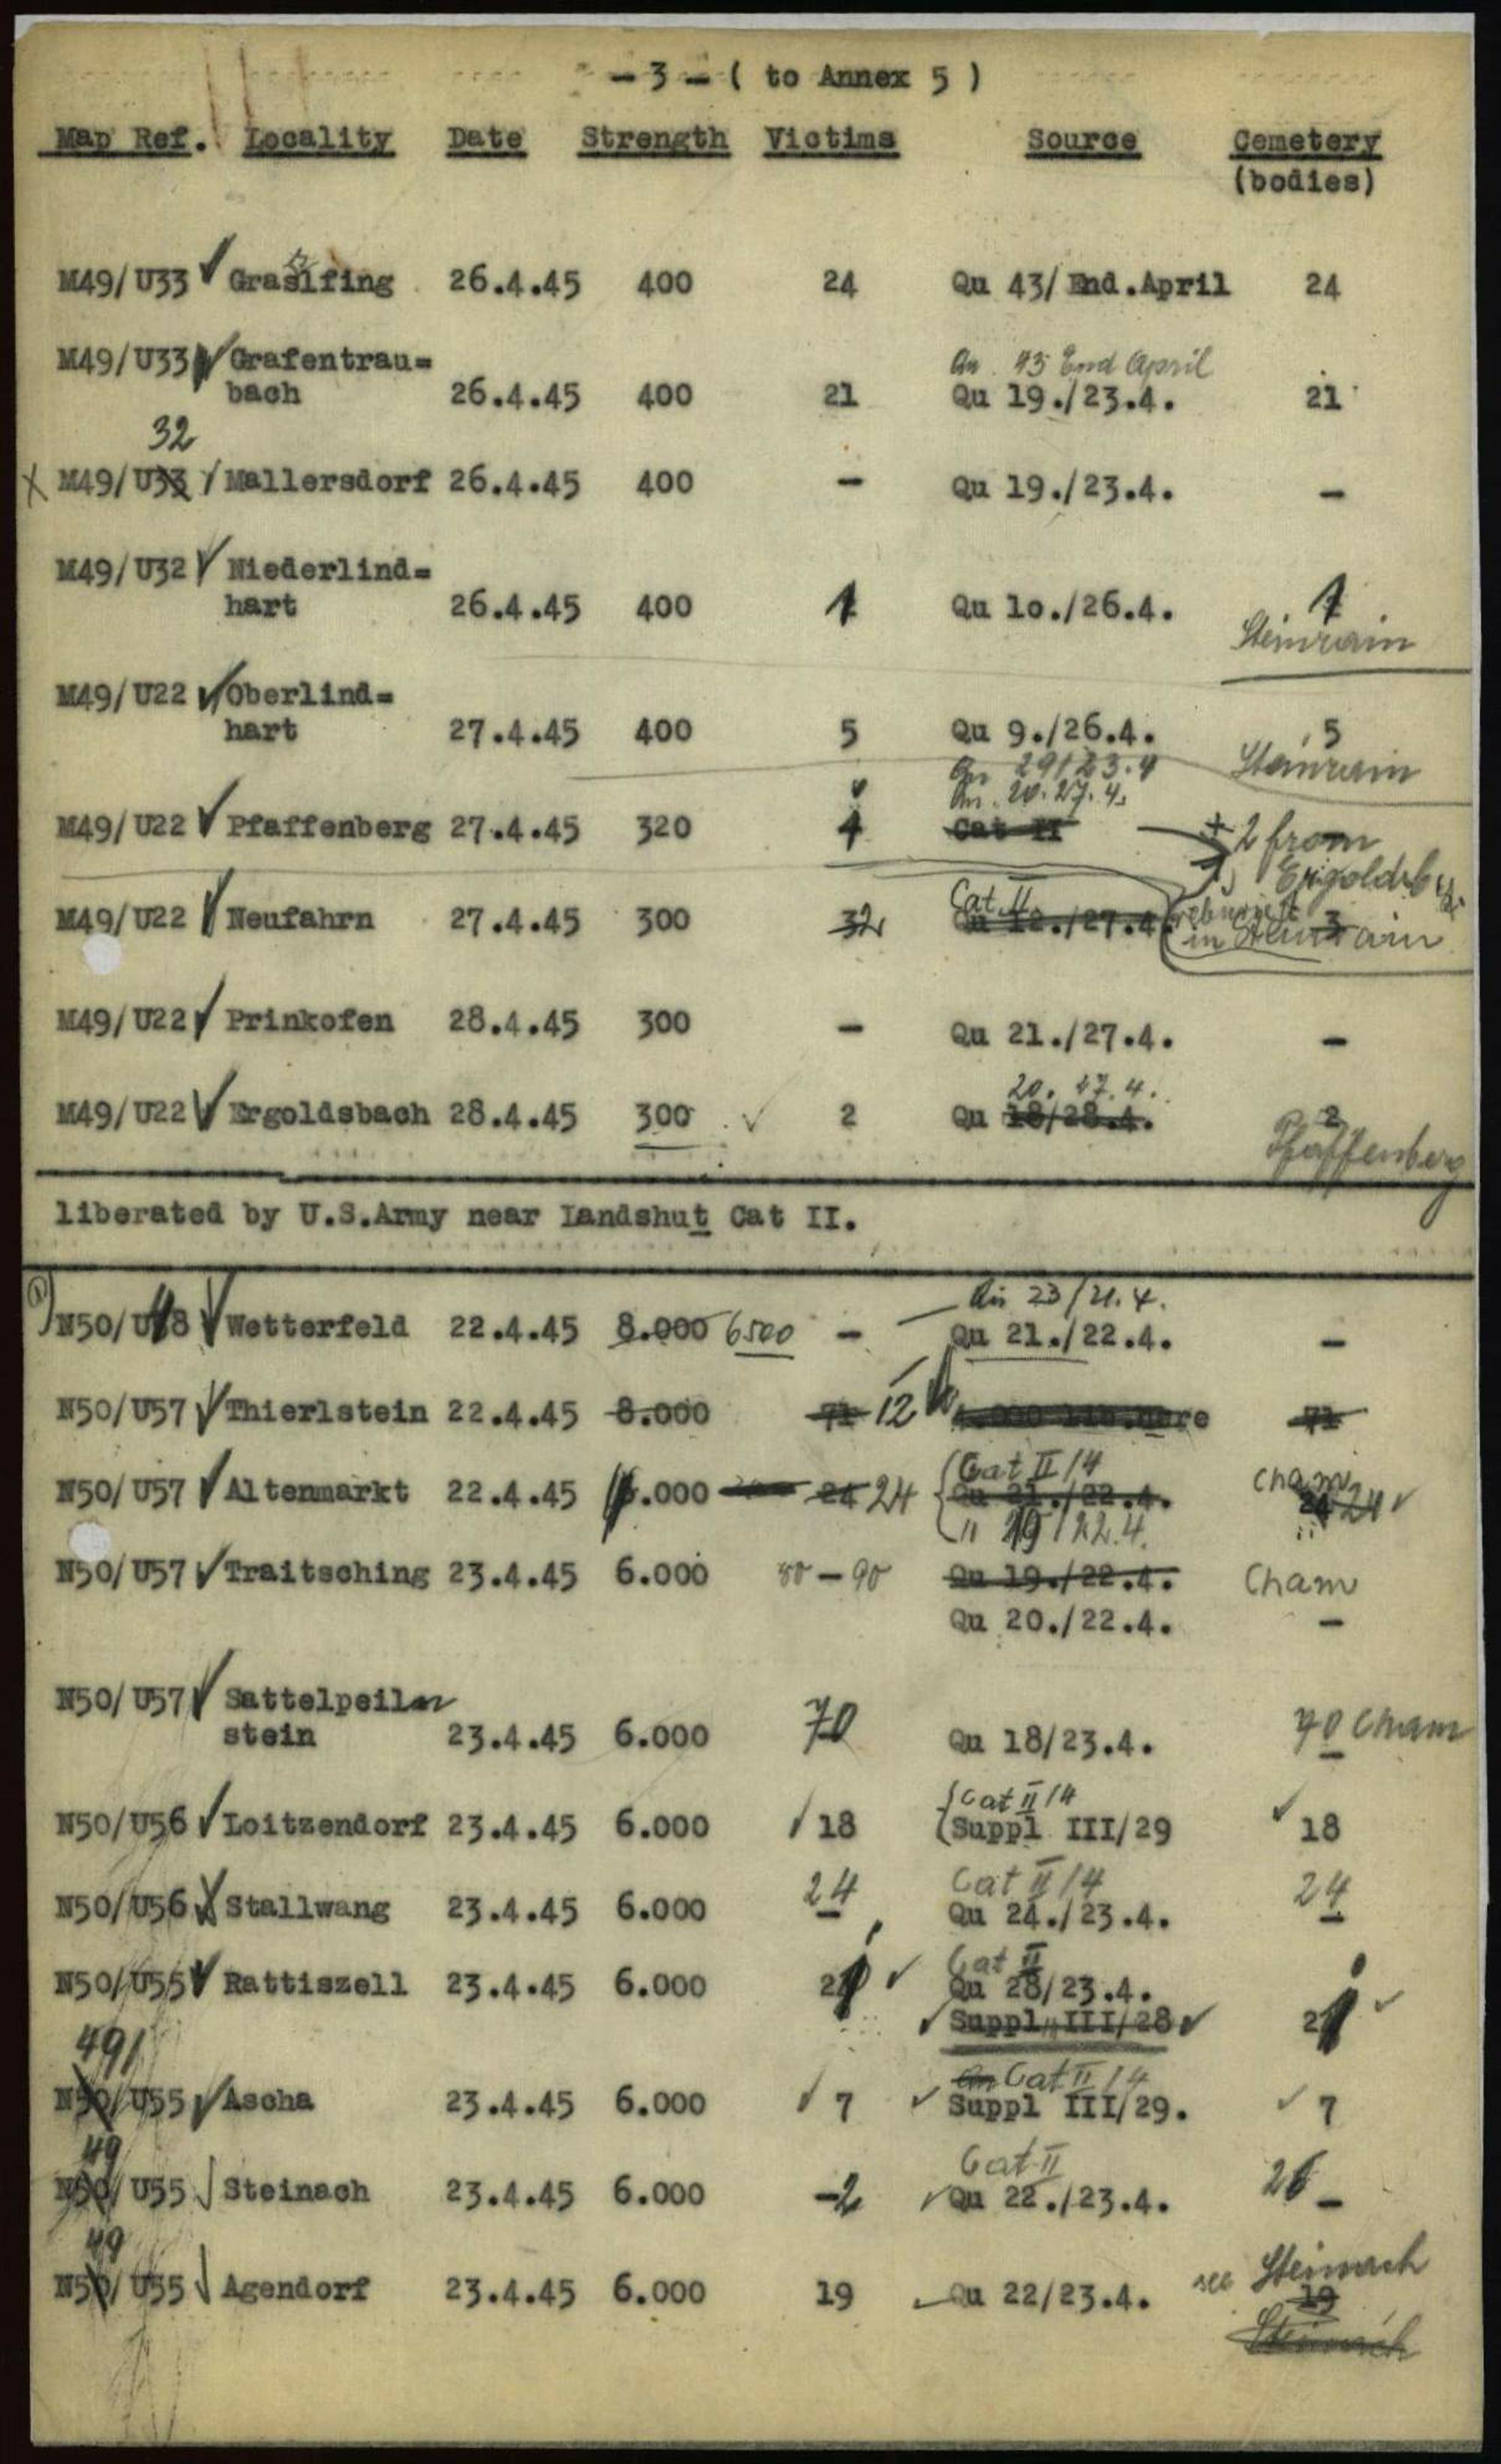 - 3 - ( to Annex 5 )
Map Ref. Locality Date Strength Victims Source Cemetery
(bodies)
M49/U33 Graslfing 26.4.45 400 24 Qu 43/End.April 24
M49/U33 Grafentrau=
Qu 43 End April
bach 26.4.45 400 21 Qu 19./23.4. 21
32
x M49/U33 Mallersdorf 26.4.45 400 - Qu 19./23.4. -
M49/U32 Niederlind=
hart 26.4.45 400 1 Qu 1o./26.4. 1
Steinrain
M49/U22 Oberlind=
hart 27.4.45 400 5 Qu 9./26.4. 5
Qu 29/23.4 Steinrain
Qu. 20.27.4.
M49/U22 Pfaffenberg 27.4.45 320 1 Cat II + 2 from
Ergoldsb.
Cat II
M49/U22 Neufahrn 27.4.45 300 32 Qu 12./27.4. reburied 3
in Steinrain
M49/U22 Prinkofen 28.4.45 300 - Qu 21./27.4. -
20. 27.4.
M49/U22 Ergoldsbach 28.4.45 300 2 Qu 18/28.4. 2
Pfaffenberg
liberated by U.S.Army near Landshut Cat II.
Qu 23/21.4.
1) N50/U48 Wetterfeld 22.4.45 8.000 6500 - Qu 21./22.4. -
N50/U57 Thierlstein 22.4.45 8.000 71 12 71
Cat II/4 Cham
N50/U57 Altenmarkt 22.4.45 6.000 24 24 Qu 21./22.4. 24 24
" 19/22.4.
N50/U57 Traitsching 23.4.45 6.000 80-90 Qu 19./22.4. Cham
Qu 20./22.4. -
N50/U57 Sattelpeiln
stein 23.4.45 6.000 70 Qu 18/23.4. 70 Cham
Cat II/4
N50/U56 Loitzendorf 23.4.45 6.000 18 Suppl III/29 18
24 Cat II/4 24
N50/U56 Stallwang 23.4.45 6.000 - Qu 24./23.4. -
Cat II
N50/U55 Rattiszell 23.4.45 6.000 21 Qu 28/23.4.
Suppl.III/28 21
49/
Qu Cat II/4
N50/U55 Ascha 23.4.45 6.000 7 Suppl III/29. 7
49 Cat II
N50/U55 Steinach 23.4.45 6.000 -2 Qu 22./23.4. 26 -
49
see Steinach
N50/U55 Agendorf 23.4.45 6.000 19 Qu 22/23.4. 19
Steinach